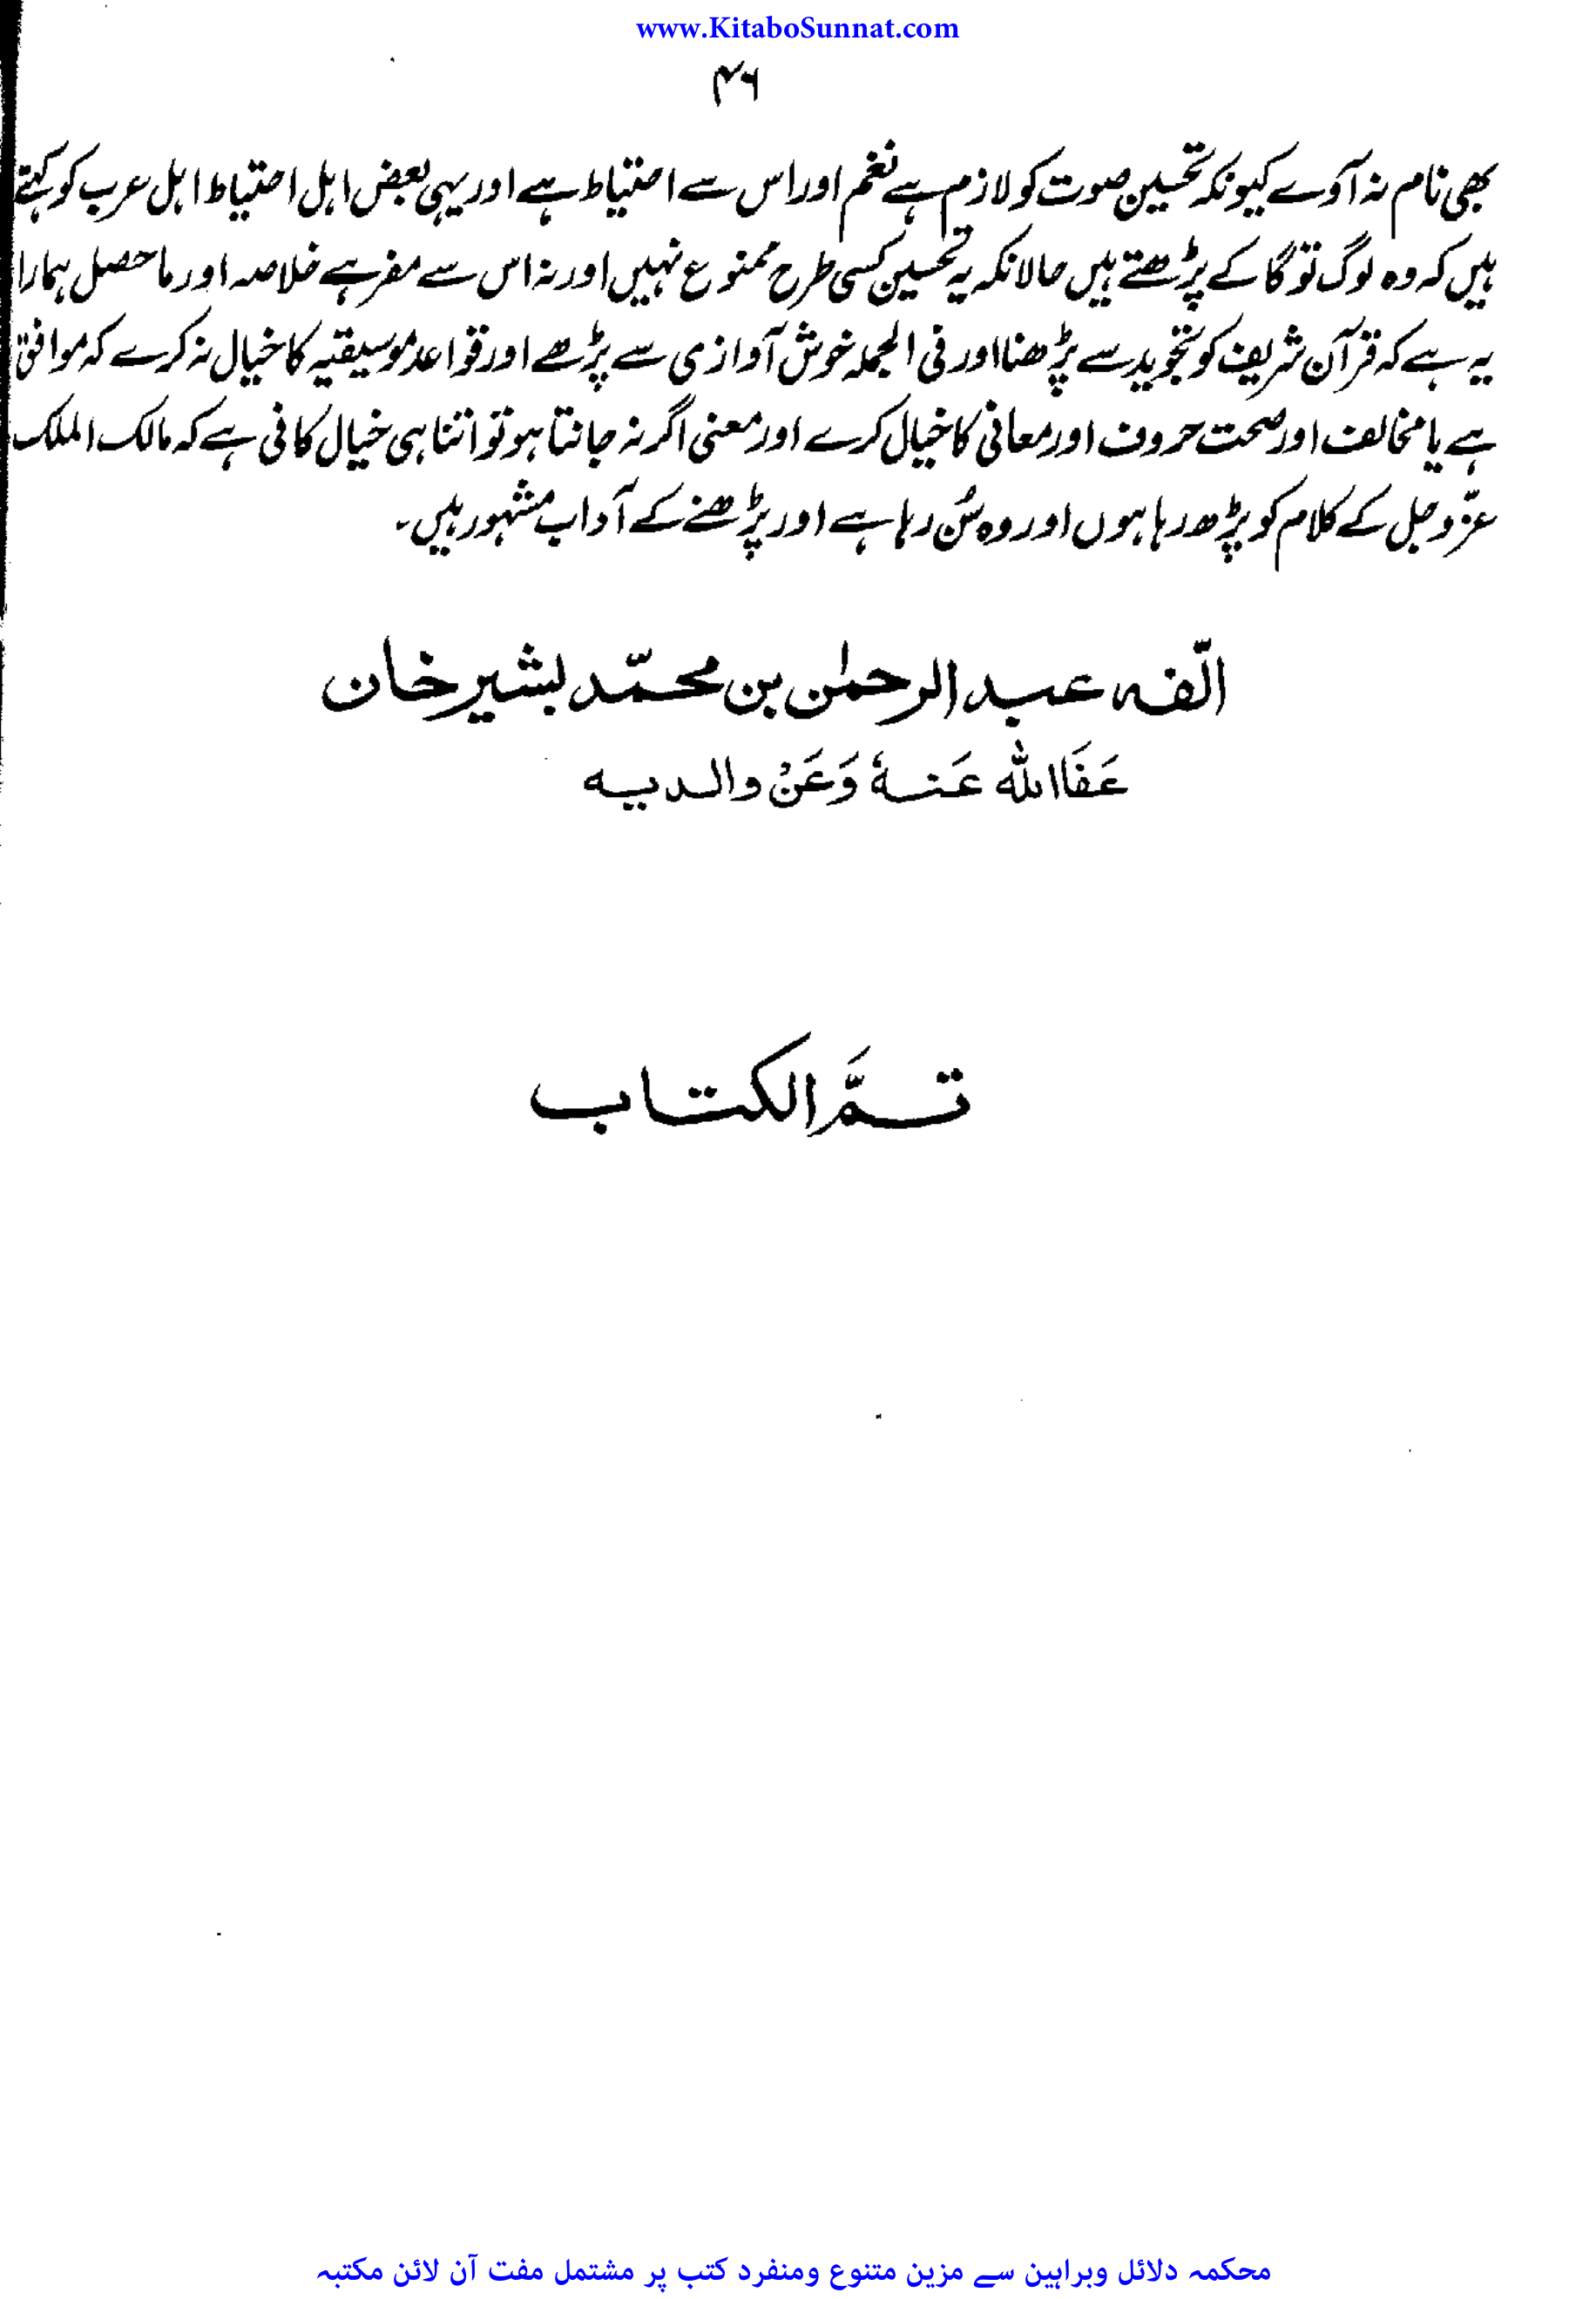 www.KitaboSunnat.com
۴۶
بھی نام نہ آوے کیونکہ تحسین صوت کو لازم ہے نغم اور اس سے احتیاط ہے اور یہی بعض اہل احتیاط اہل عرب کو کہتے
ہیں کہ وہ لوگ تو گا کے پڑھتے ہیں حالانکہ یہ تحسین کسی طرح ممنوع نہیں اور نہ اس سے مفر ہے خلاصہ اور ماحصل ہمارا
یہ ہے کہ قرآن شریف کو تجوید سے پڑھنا اور فی الجملہ خوش آوازی سے پڑھے اور قواعد موسیقیہ کا خیال نہ کرے کہ موافق
ہے یا مخالف اور صحت حروف اور معانی کا خیال کرے اور معنی اگر نہ جانتا ہو تو اتنا ہی خیال کافی ہے کہ مالک الملک
عزّوجل کے کلام کو پڑھ رہا ہوں اور وہ سُن رہا ہے اور پڑھنے کے آداب مشہور ہیں۔
الّفہ عبد الرحمٰن بن محمّد بشیر خان
عَفَا اللہ عَنہُ وَعَنْ والدیہ
تمَّ الکتاب
محکمہ دلائل وبراہین سے مزین متنوع ومنفرد کتب پر مشتمل مفت آن لائن مکتبہ